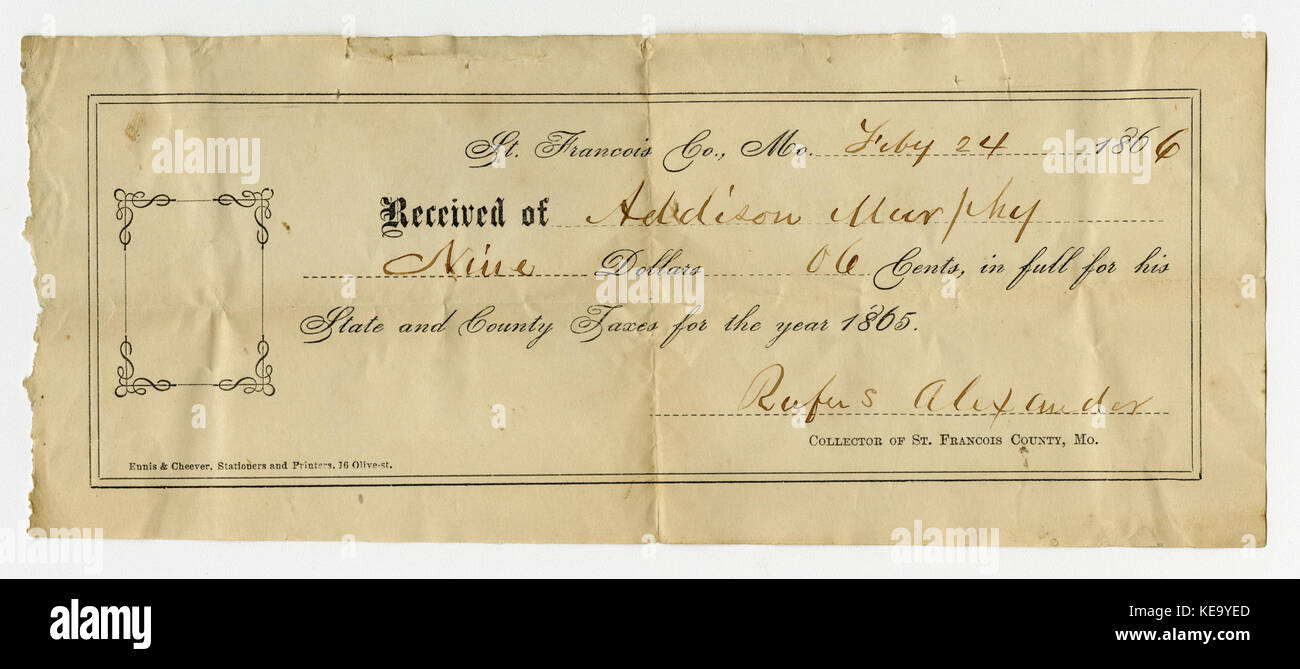 St. Francois Co., Mo. Feby 24 1866
Received of Addison Murphy
Nine Dollars 06 Cents, in full for his
State and County Taxes for the year 1865.
Rufus Alexander
COLLECTOR OF ST. FRANCOIS COUNTY, MO.
Ennis & Cheever, Stationers and Printers, 16 Olive-st.
a alamy stock photo
KE9YED
www.alamy.com